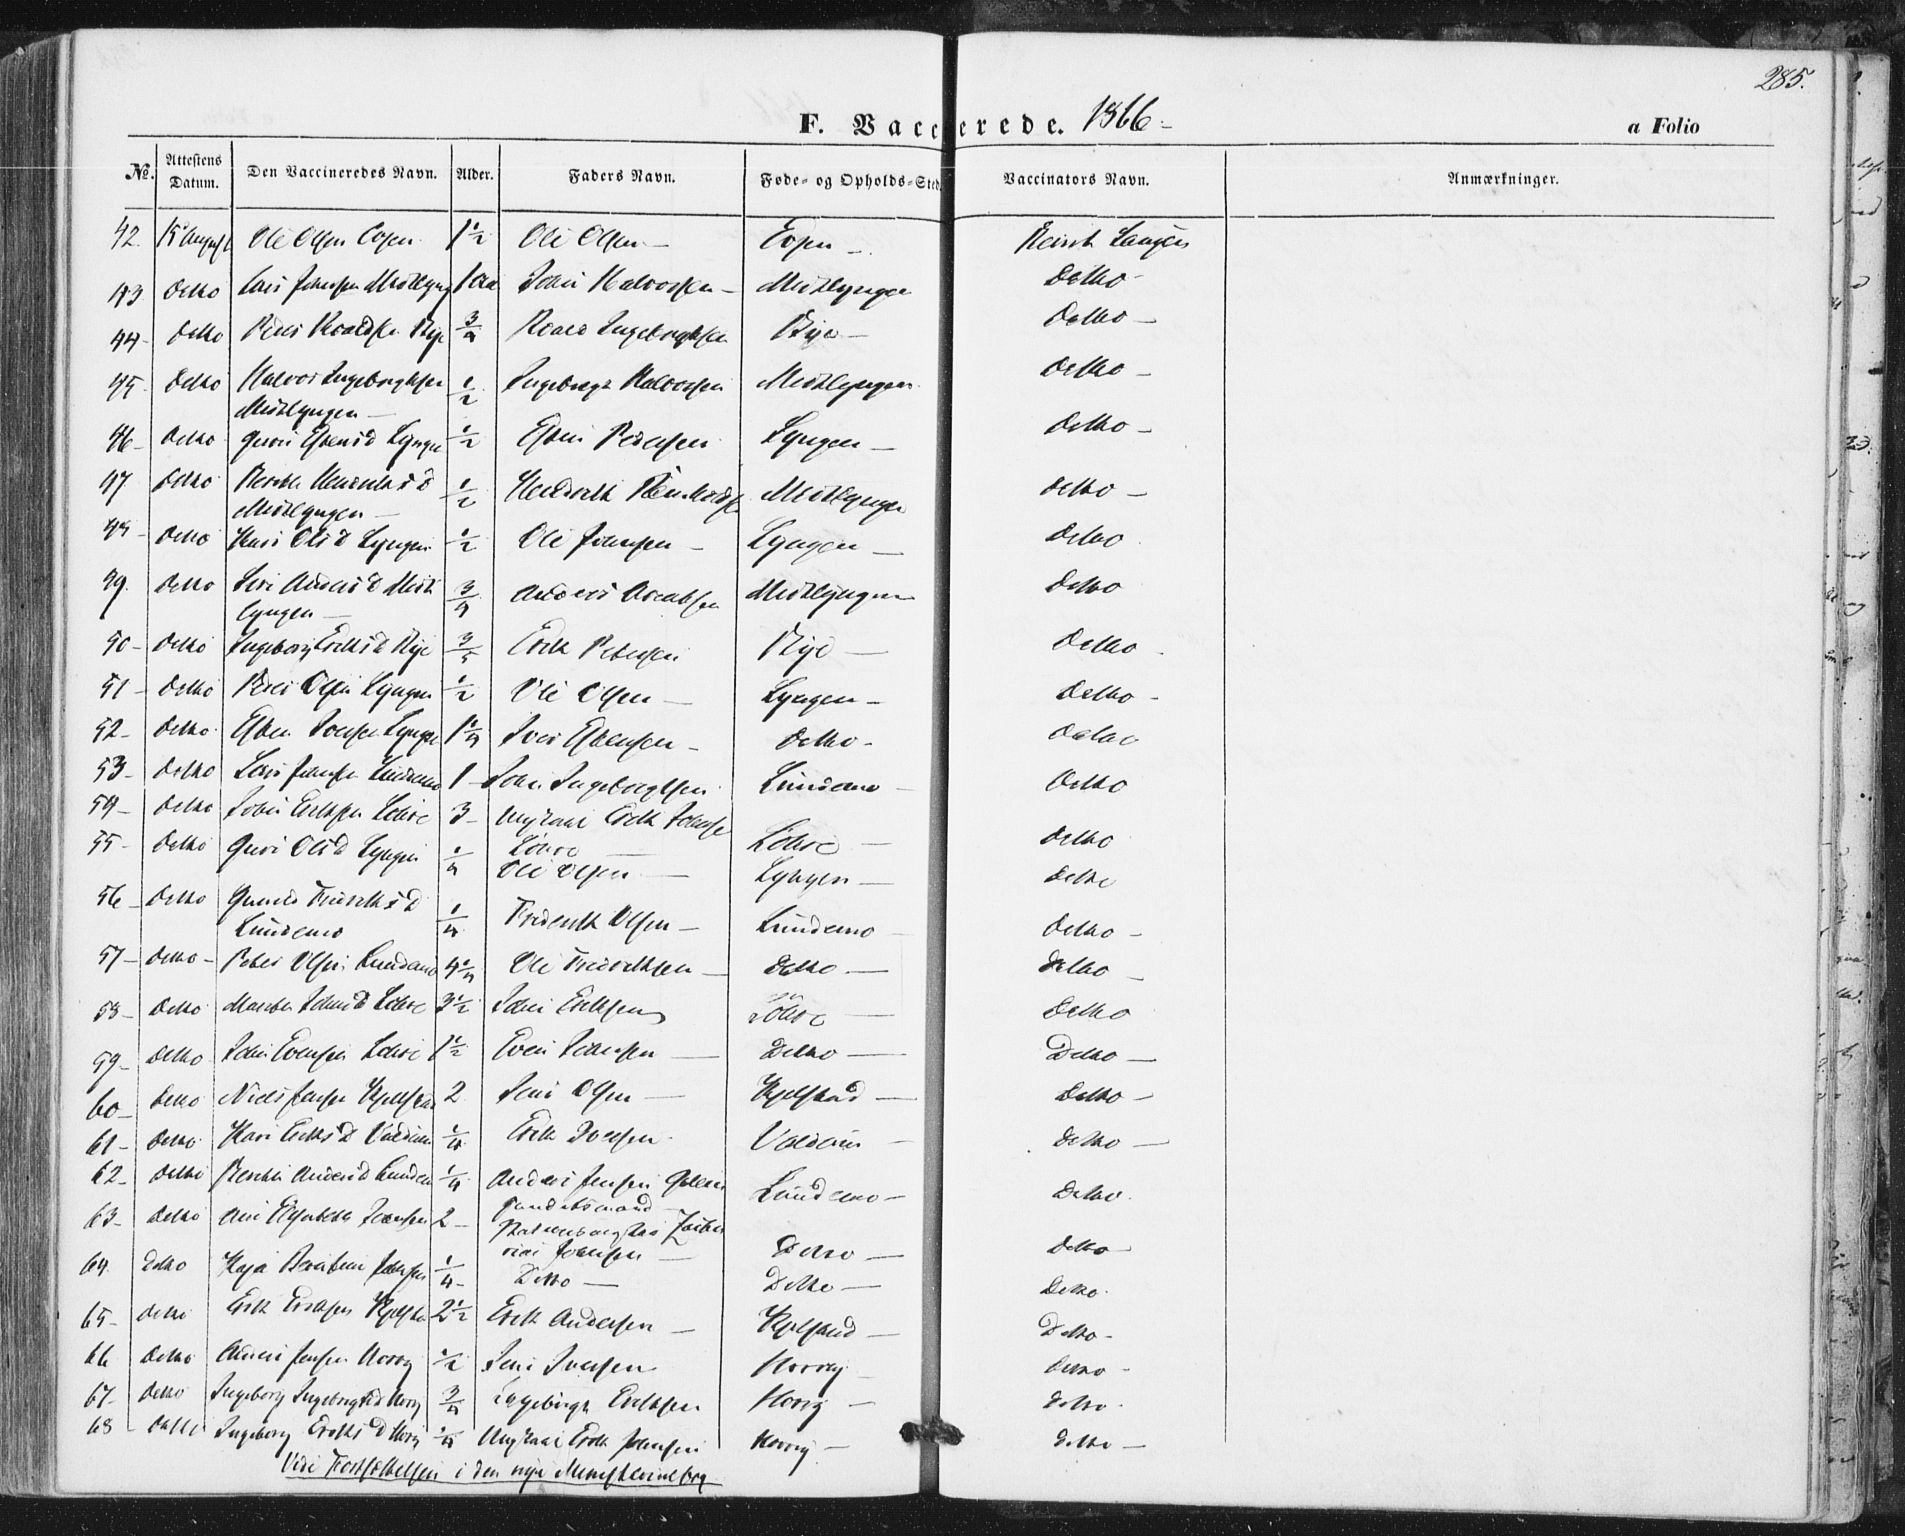 285.
F. Vaccinerede. 1866
a Folio
No. Attestens Datum. Den Vaccineredes Navn. Alder. Faders Navn. Føde- og Opholds-Sted. Vaccinators Navn. Anmærkninger.
42. 15 August Ole Olsen 1½ Ole Olsen – Langen
43 Detto Lars Johnsen 1 aar John Halvorsen – Midtlyngen Detto
44 – Detto Peder Roaldsen Rye ¾ Roald Ingebrigtsen Rye – Detto –
45. Detto Halvor Ingebrigtsen ½ Ingebrigt Halvorsen Midtlyngen Detto –
Midtlyngen –
46 – Detto Guru Esbensd Lyngen ½ Esben Pedersen Lyngen – Detto –
47 Detto ½ Midtlyngen Detto –
Midtlyngen –
48 – Detto Kari Olsd Lyngen ½ Ole Johnsen – Lyngen – Detto
49. Detto Siri Andersd Midt ¾ Anders Midtlyngen Detto
lyngen –
50 – Detto Ingeborg Eriksd Rye Erik Petersen Rye – Detto
51 – Detto Peder Olsen Lyngen ½ Ole Olsen – Lyngen – Detto –
52 – Detto Esben Iversen Lyngen 1¼ Iver Esbensen – Detto – Detto
53 – Detto Lars Johnsen Lundemo 1 – John Ingebrigtsen Lundemo – Detto
54 – Detto John Eriksen Løhre 3 – Ungkarl Erik Johnsen
Løhre – Løhre – Detto
55 – Detto Guri Olsd Lyngen ¼ Ole Olsen – Lyngen – Detto
56 – Detto Gunild Fredriksd ¼ Frederik Olsen – Lundemo – Detto –
Lundemo
57 – Detto – Peter Olsen Lundemo 4¼ Ole Fredriksen – Detto – Detto –
58 – Detto Johnsd Løhre 3½ John Eriksen Løhre – Detto
59 – Detto John Evensen Løhre 1½ Even Johnsen – Detto – Detto –
60 – Detto Niels Jensen Kjelstad 2 Jens Olsen – Kjelstad – Detto –
61 – Detto Kari Eriksd ¼ Erik Iversen – Detto –
62 – Detto Andersd Lundemo ¼ Anders Jensen Lundemo – Detto
63 – Detto Johnsen 2 –
Johnsen – Detto – Detto
64. Detto Kaja Johnsen ¼ – Detto – Detto Detto
65 – Detto Erik Eriksen 2½ Erik Andersen – Kjelstad – Detto –
66 Detto Anders Jensen Horrig ½ Jens Iversen Horrig – Detto –
67 – Detto Ingeborg Ingebrigtsd Horrig ¾ Ingebrigt Eriksen Horrig – Detto
68 – Detto Ingeborg Eriksd Horrig ¼ Ungkarl Erik Johnsen Horrig – Detto –
Vide Fortsættelsen i den nye Ministerialbog